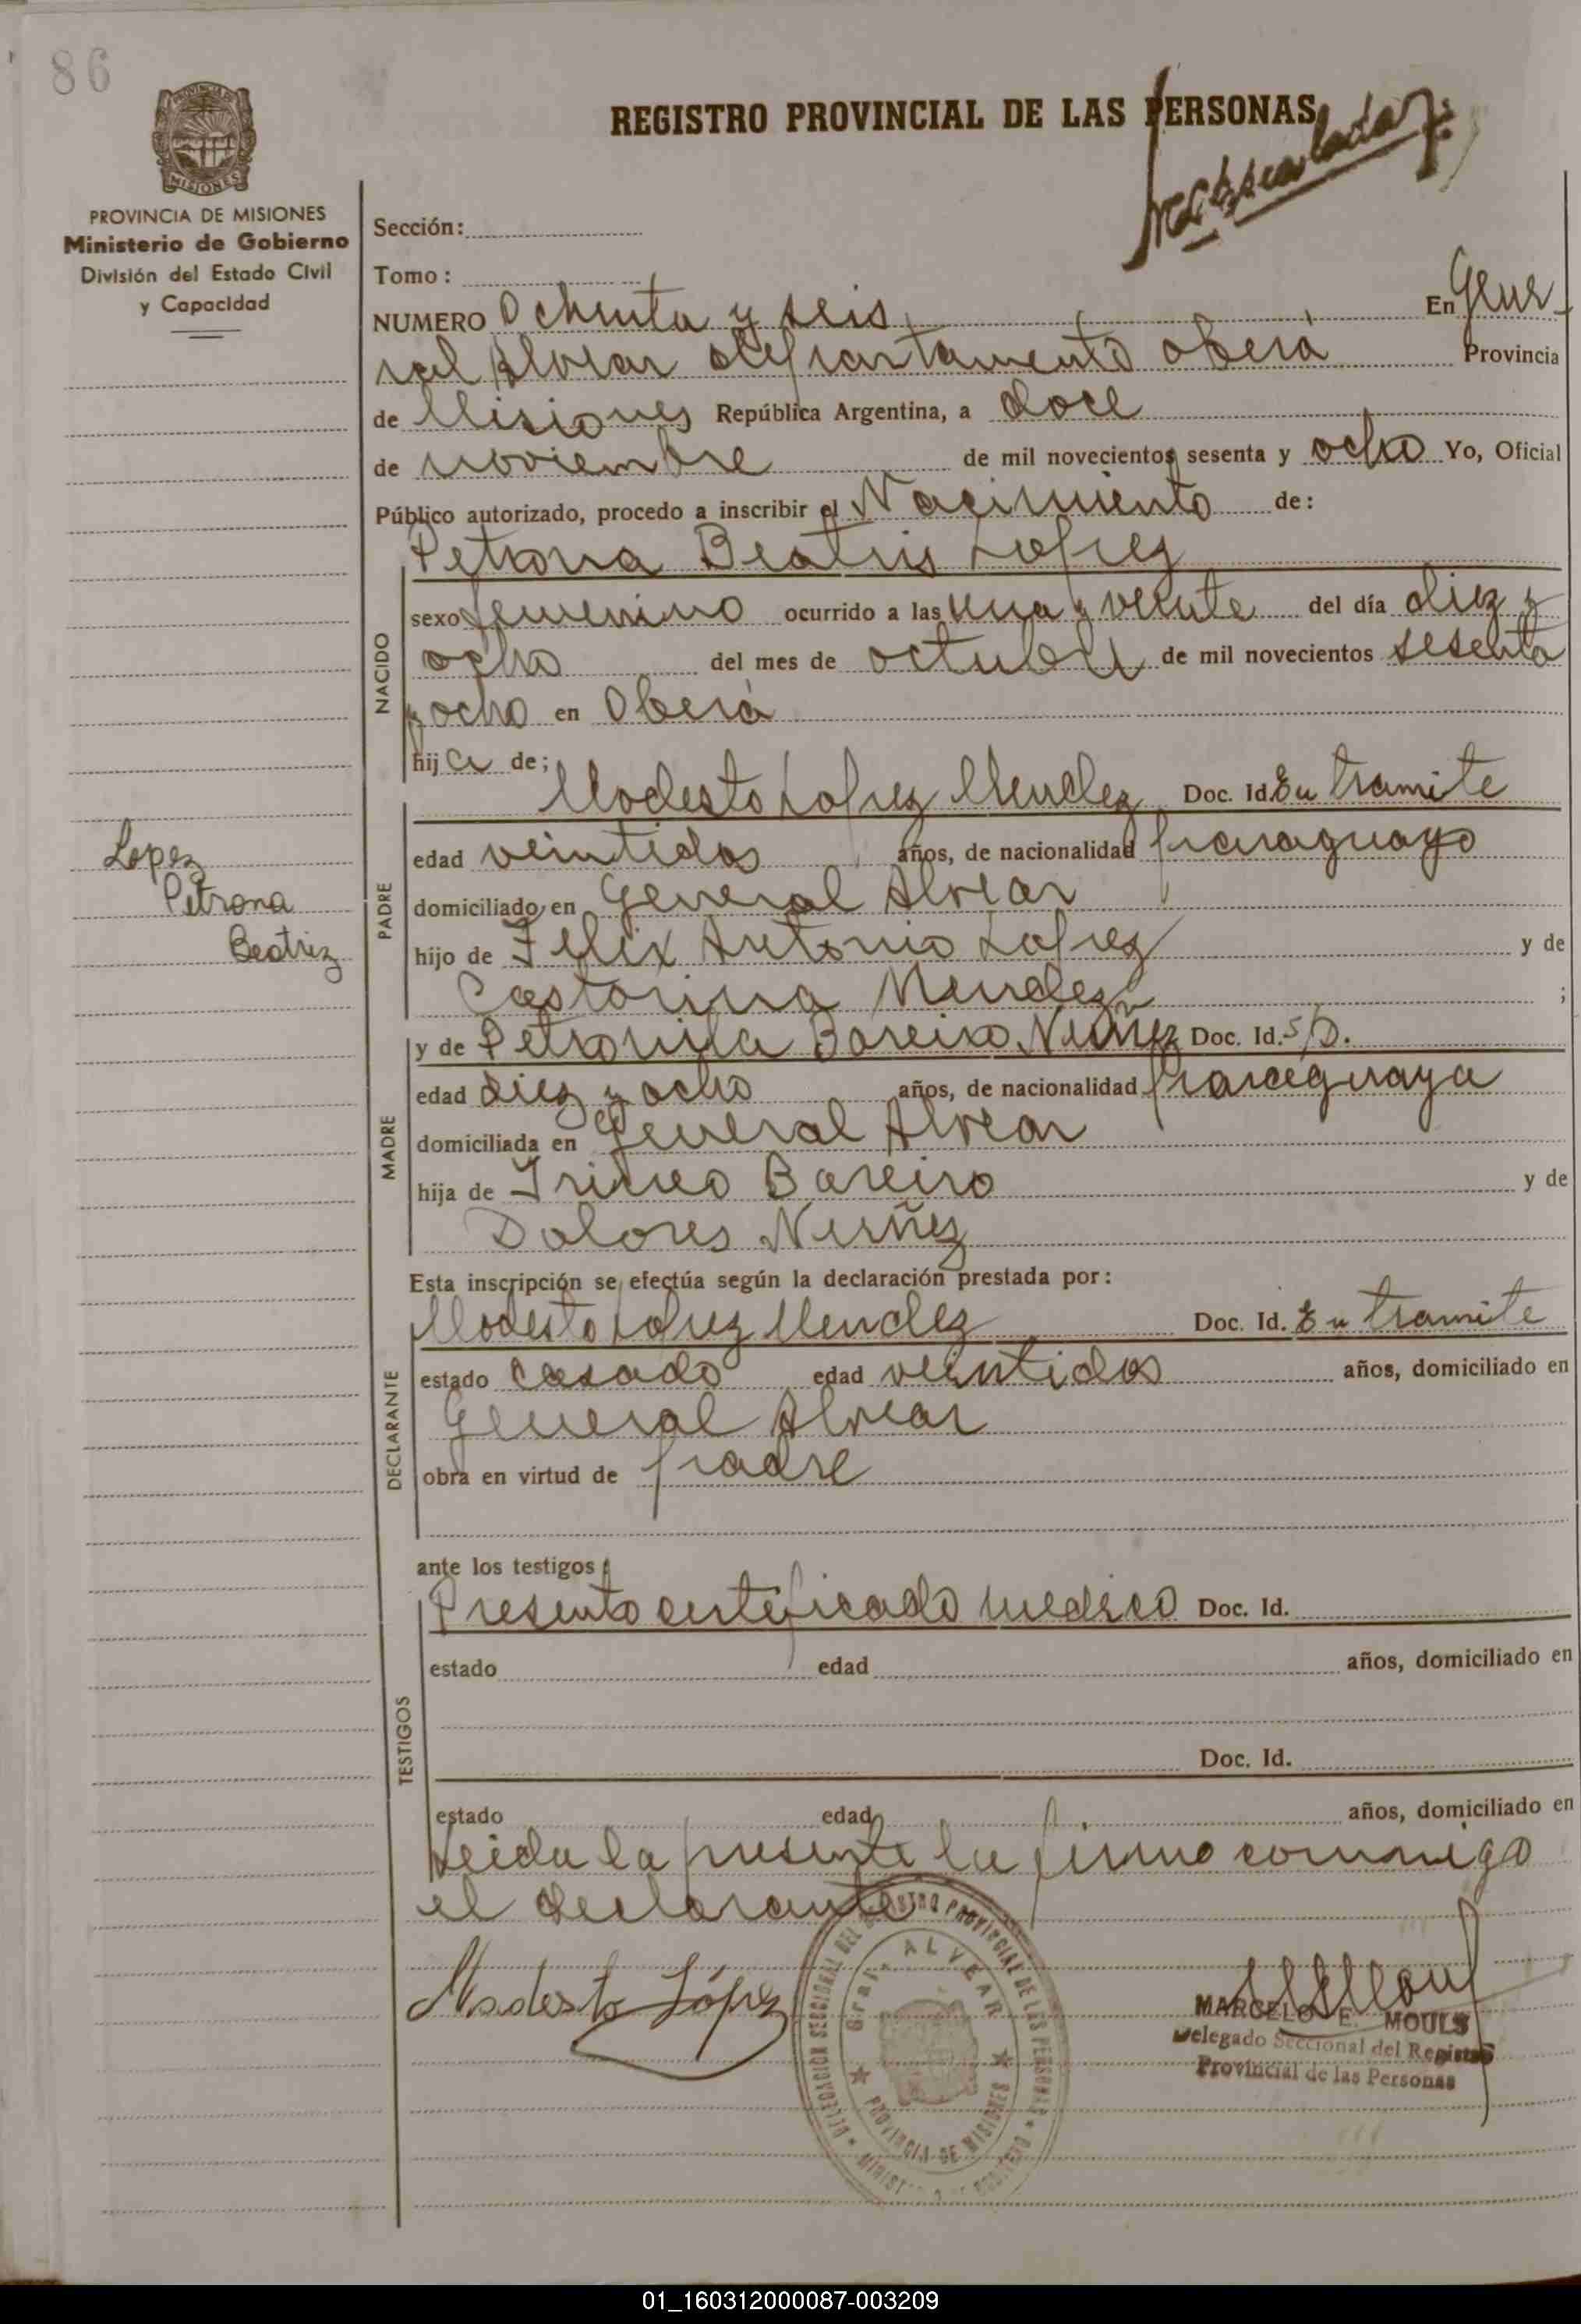 86
PROVINCIA DE MISIONES
Ministerio de Gobierno
División del Estado Civil
y Capacidad
REGISTRO PROVINCIAL DE LAS PERSONAS
Sección:
Tomo:
NUMERO Ochenta y seis En Gene-
ral Alvear departamento Oberá Provincia
de Misiones República Argentina, a doce
de noviembre de mil novecientos sesenta y ocho Yo, Oficial
Público autorizado, procedo a inscribir el Nacimiento de:
Petrona Beatris Lopez
NACIDO
sexo femenino ocurrido a las una y veinte del día diez y
ocho del mes de octubre de mil novecientos sesenta
y ocho en Oberá
hija de;
Modesto Lopez Mendez Doc. Id. En tramite
PADRE
edad veintidos años, de nacionalidad paraguayo
domiciliado en General Alvear
hijo de Felix Antonio Lopez y de
Castorina Mendez ;
Lopez
Petrona
Beatriz
y de Petronila Bareiro Nuñez Doc. Id. S/D.
MADRE
edad diez y ocho años, de nacionalidad paraguaya
domiciliada en General Alvear
hija de Irineo Bareiro y de
Dolores Nuñez
Esta inscripción se efectúa según la declaración prestada por:
Modesto Lopez Mendez Doc. Id. En tramite
DECLARANTE
estado casado edad veintidos años, domiciliado en
General Alvear
obra en virtud de padre
ante los testigos
Presento certificado medico Doc. Id.
TESTIGOS
estado edad años, domiciliado en
Doc. Id.
estado edad años, domiciliado en
Leida la presente la firma conmigo
el declarante
Modesto López
DELEGACION SECCIONAL DEL REGISTRO PROVINCIAL DE LAS PERSONAS
Gral. ALVEAR
PROVINCIA DE MISIONES
MARCELO E. MOULS
Delegado Seccional del Registro
Provincial de las Personas
01_160312000087-003209